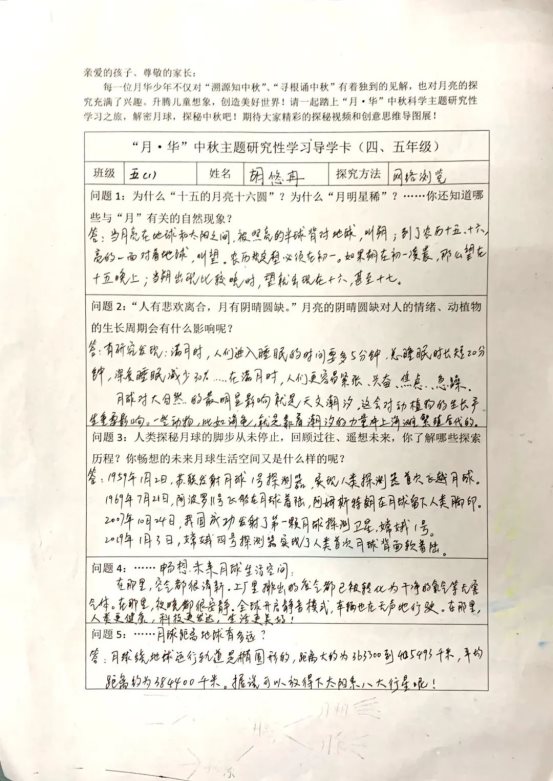 亲爱的孩子、尊敬的家长：
每一位月华少年不仅对“溯源知中秋”、“寻根诵中秋”有着独到的见解，也对月亮的探
究充满了兴趣。升腾儿童想象，创造美好世界！请一起踏上“月·华”中秋科学主题研究性
学习之旅，解密月球，探秘中秋吧！期待大家精彩的探秘视频和创意思维导图展！
“月·华”中秋主题研究性学习导学卡（四、五年级）
班级 五（1） 姓名 胡悠冉 探究方法 网络浏览
问题 1：为什么“十五的月亮十六圆”？为什么“月明星稀”？……你还知道哪
些与“月”有关的自然现象？
答：当月亮在地球和太阳之间，被照亮的半球背对地球，叫朔；到了农历十五、十六，
亮的一面对着地球，叫望。农历规定朔必须在初一。如果朔在初一凌晨，那么望在
十五晚上；当朔出现比较晚时，望就出现在十六，甚至十七。
问题 2：“人有悲欢离合，月有阴晴圆缺。”月亮的阴晴圆缺对人的情绪、动植物
的生长周期会有什么影响呢？
答：有研究发现：满月时，人们进入睡眠的时间要多5分钟，总睡眠时长短20分
钟，深度睡眠减少30%……在满月时，人们更容易紧张、兴奋、焦虑、急躁。
月球对大自然的最明显影响就是天文潮汐，这会对动植物的生长产
生重要影响。一些动物，比如海龟，就是靠着潮汐的力量冲上海滩，繁殖后代的。
问题 3：人类探秘月球的脚步从未停止，回顾过往、遥想未来，你了解哪些探索
历程？你畅想的未来月球生活空间又是什么样的呢？
答：1959年1月2日，苏联发射月球1号探测器，实现人类探测器首次飞越月球。
1969年7月21日，阿波罗11号飞船在月球着陆，阿姆斯特朗在月球留下人类脚印。
2007年10月24日，我国成功发射了第一颗月球探测卫星：嫦娥1号。
2019年1月3日，嫦娥四号探测器实现了人类首次月球背面软着陆。
问题 4：……畅想未来月球生活空间：
在那里，空气都很清新，工厂里排出的废气都已被转化为干净的氧气等无害
气体。在那里，夜晚都很安静，全球开启静音模式，车辆也在无声地行驶。在那里，
人类更健康，科技更发达，生活更美好！
问题 5：……月球距离地球有多远？
答：月球绕地球运行轨道是椭圆形的，距离大约为363300到405493千米，平均
距离约为384400千米。据说，可以放得下太阳系八大行星呢！